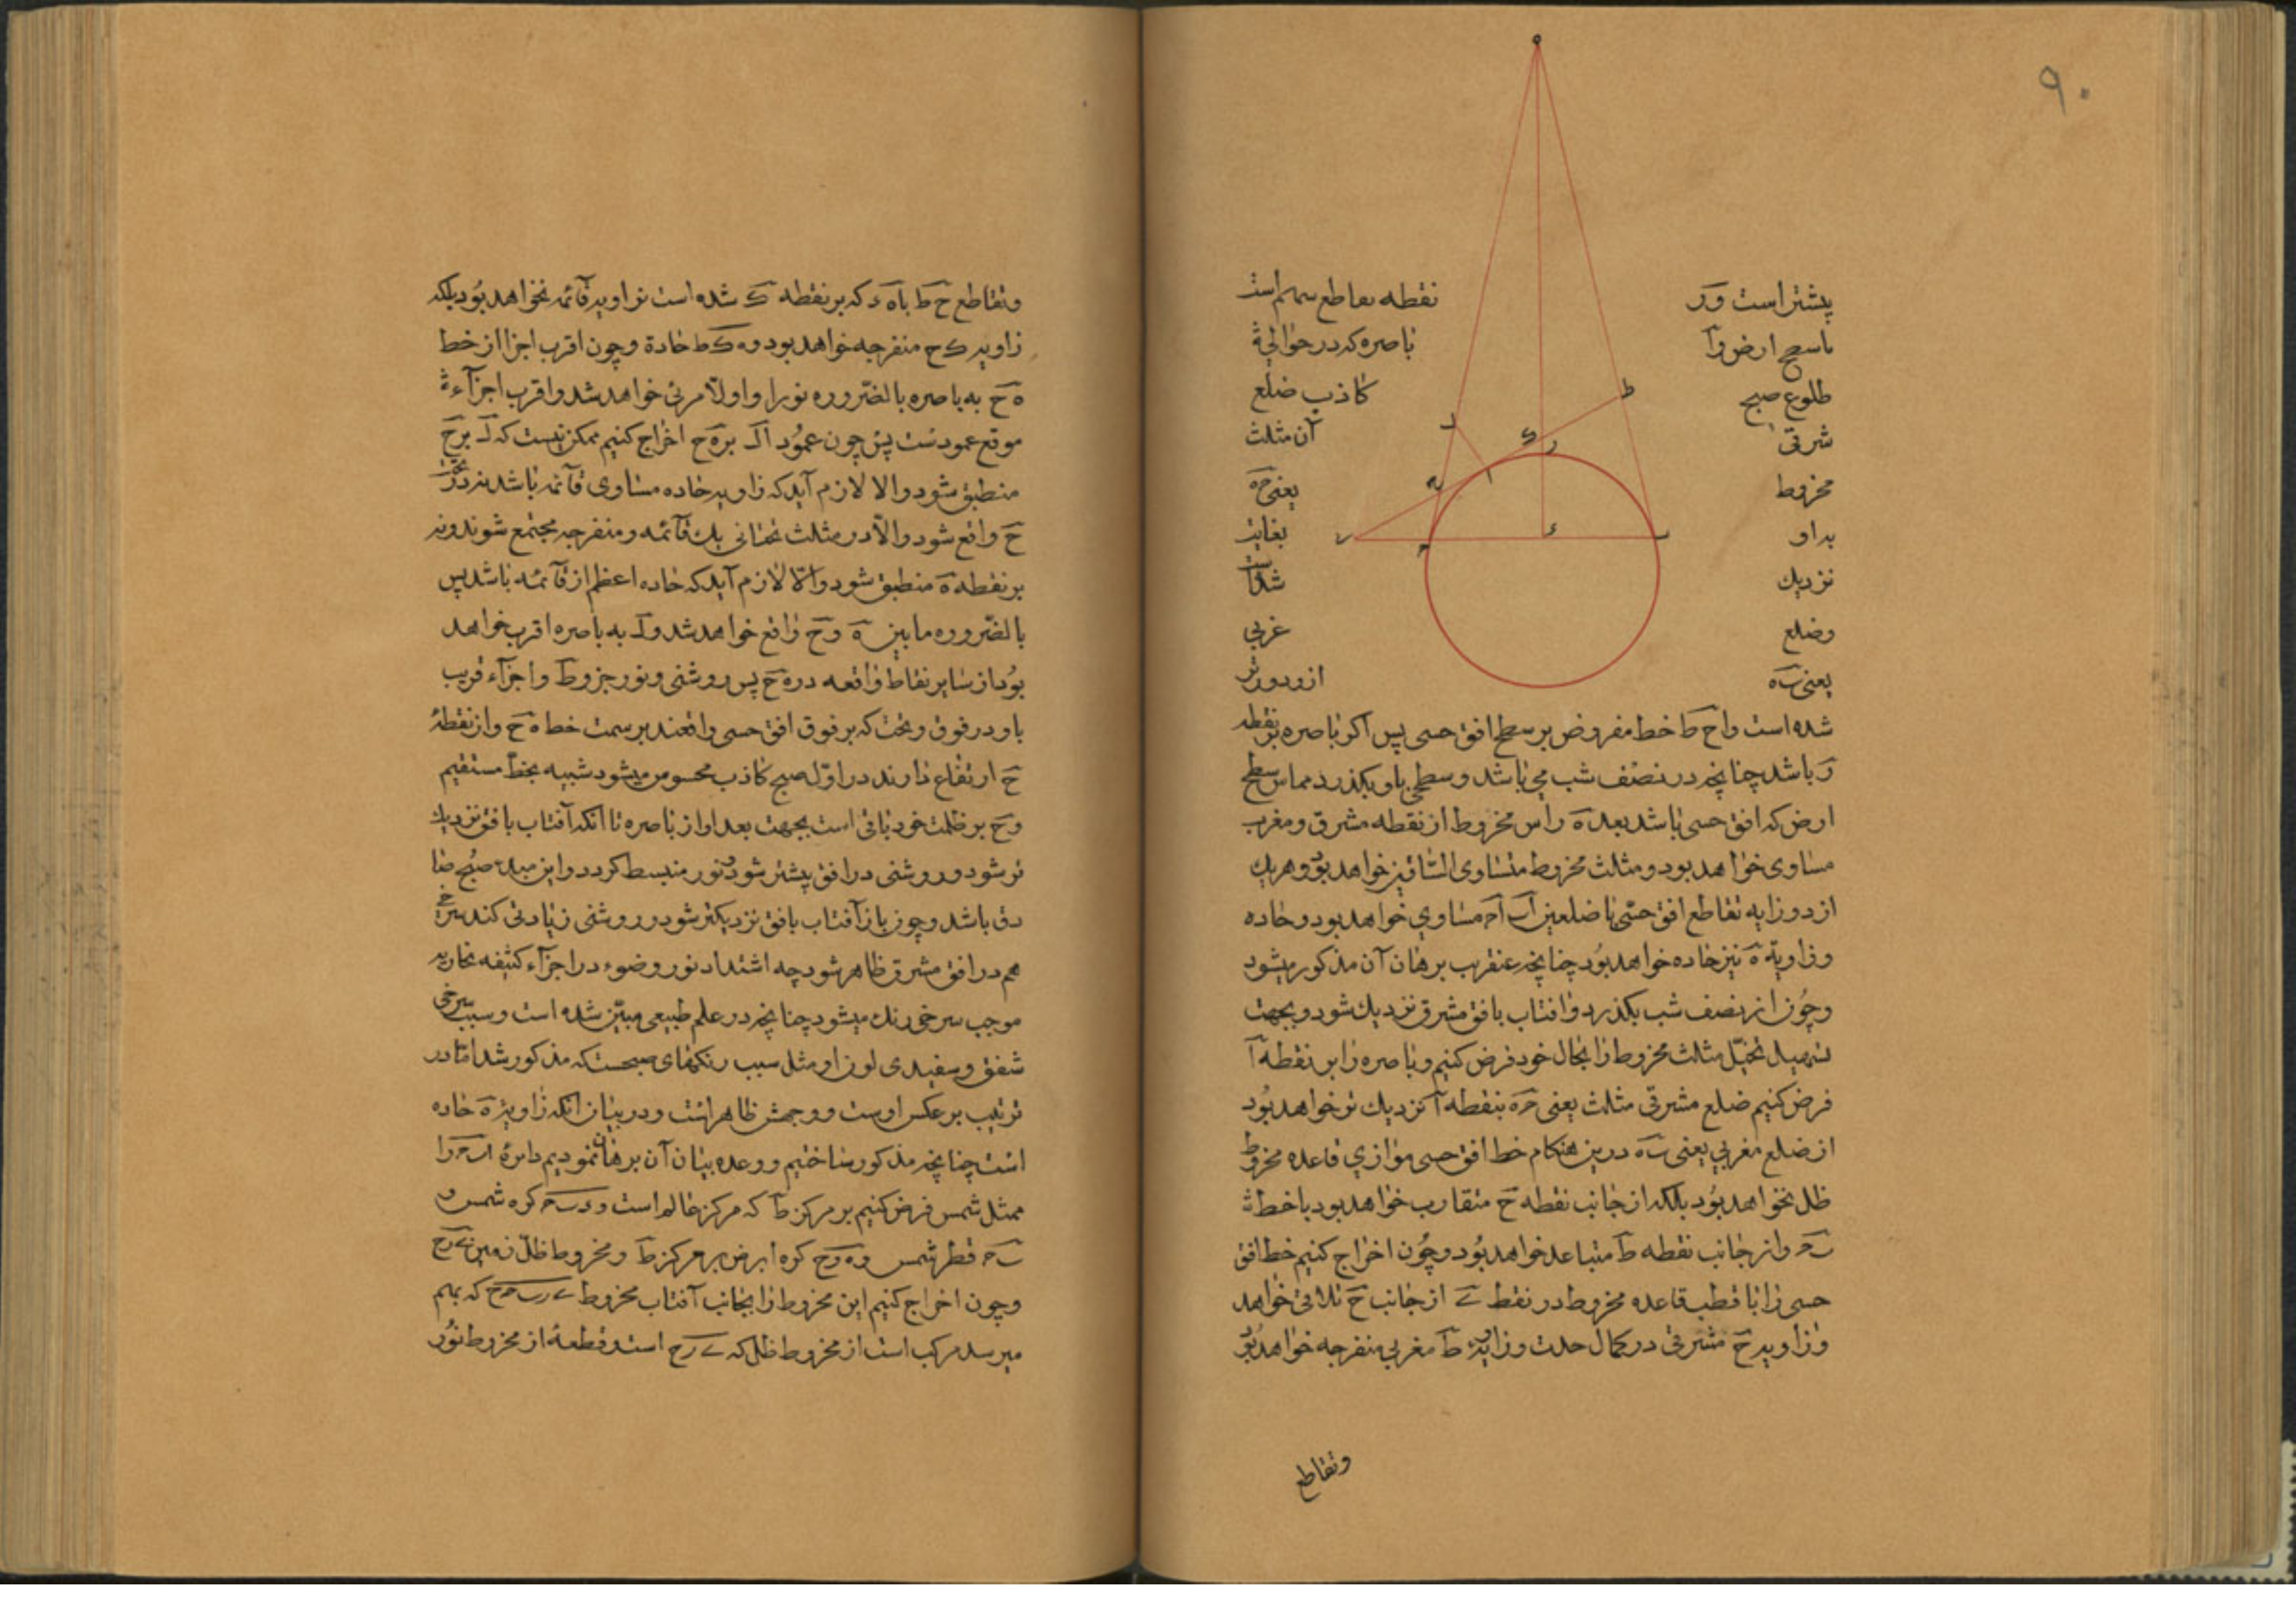 ۹۰
پیشتر است و ر نقطه تقاطع سهم است
با سطح ارض و آ باصره که در حوالی
طلوع صبح کاذب ضلع
شرقی آن مثلث
مخروط یعنی حه
بداو بغایت
نزدیک شده است
وضلع غربی
یعنی ب ه ازو دورتر
شده است واح ط خط مفروض بر سطح افق حسی پس اگر باصره بر نقطه
ر باشد چنانچه در نصف شب می باشد و سطحی باو بگذرد مماس سطح
ارض که افق حسی باشد بعد ه راس مخروط از نقطه مشرق و مغرب
مساوی خواهد بود و مثلث مخروط متساوی الساقین خواهد بود و هریک
از دو زاویه تقاطع افق حسی با ضلعین مساوی خواهد بود و حاده
و زاویهٔ ه نیز حاده خواهد بود چنانچه عنقریب برهان آن مذکور میشود
وچون از نصف شب بکذرد وافتاب بافق مشرق نزدیک شود و بجهت
تسهیل تخیل مثلث مخروط را بحال خود فرض کنیم و باصره را بر نقطه آ
فرض کنیم ضلع مشرقی مثلث یعنی حه بنقطه آ نزدیک تر خواهد بود
از ضلع مغربی یعنی ب ه درین هنکام خط افق حسی موازی قاعده مخروط
ظل نخواهد بود بلکه از جانب نقطه ح متقارب خواهد بود با خط
ب ح و از جانب نقطه ط متباعد خواهد بود وچون اخراج کنیم خط افق
حسی را با قطب قاعده مخروط در نقطه از جانب ح تلاقی خواهد
و زاویه ح مشرقی در کمال حدت و زاویه ط مغربی منفرجه خواهد بود
وتقاطع
وتقاطع ح ط با ه ء که بر نقطه ک شده است بزاویه قائمه نخواهد بود بلکه
زاویه ک ح منفرجه خواهد بود و ه ک ط حادة وچون اقرب اجزا از خط
ه ح به باصره بالضروره نورا و اولا مرئی خواهد شد و اقرب اجزآء
موقع عمودست پس چون عمود ا ل بر ه ح اخراج کنیم ممکن نیست که ل بر ح
منطبق شود والا لازم آید که زاویه حاده مساوی قآئمه باشد و نه در تحت
ح واقع شود والا در مثلث تحتانی یک قآئمه و منفرجه مجتمع شوند و نه
بر نقطه ه منطبق شود والا لازم آید که حاده اعظم از قآئمه باشد پس
بالضروره مابین ه و ح واقع خواهد شد و ل به باصره اقرب خواهد
بود از سایر نقاط واقعه در ه ح پس روشنی و نور جزو ط و اجزآء قریب
باو در فوق و تحت که بر فوق افق حسی واقعند بر سمت خط ه ح و از نقطه
ح ارتفاع دارند در اول صبح کاذب محسوس میشود شبیه بخط مستقیم
و ح بر ظلمت خود باقی است بجهت بعد او از باصره تا انکه آفتاب بافق نزدیک
تر شود و روشنی در افق بیشتر شود و نور منبسط کردد و این مبدء صبح صا
دق باشد وچون باز آفتاب بافق نزدیکتر شود و روشنی زیادتی کند سرخی
هم در افق مشرق ظاهر شود چه اشتداد نور و ضوء در اجزآء کثیفه بخاریه
موجب سرخی رنک میشود چنانچه در علم طبیعی مبین شده است و سبب سرخی
شفق و سفیدی لون او مثل سبب رنکهای صبحست که مذکور شد اما در
ترتیب بر عکس اوست و وجهش ظاهر است و در بیان انکه زاویهٔ ه حاده
است چنانچه مذکور ساختیم و وعده بیان آن برهان نمودیم دایرهٔ ا ب ح را
ممثل شمس فرض کنیم بر مرکز ط که مرکز عالم است و کره شمس و
ب ح قطر شمس و ه و ح کره ارض بر مرکز ط و مخروط ظل زمین
وچون اخراج کنیم این مخروط را بجانب آفتاب مخروط که بهم
میرسد مرکب است از مخروط ظل که است و قطعهٔ از مخروط نور